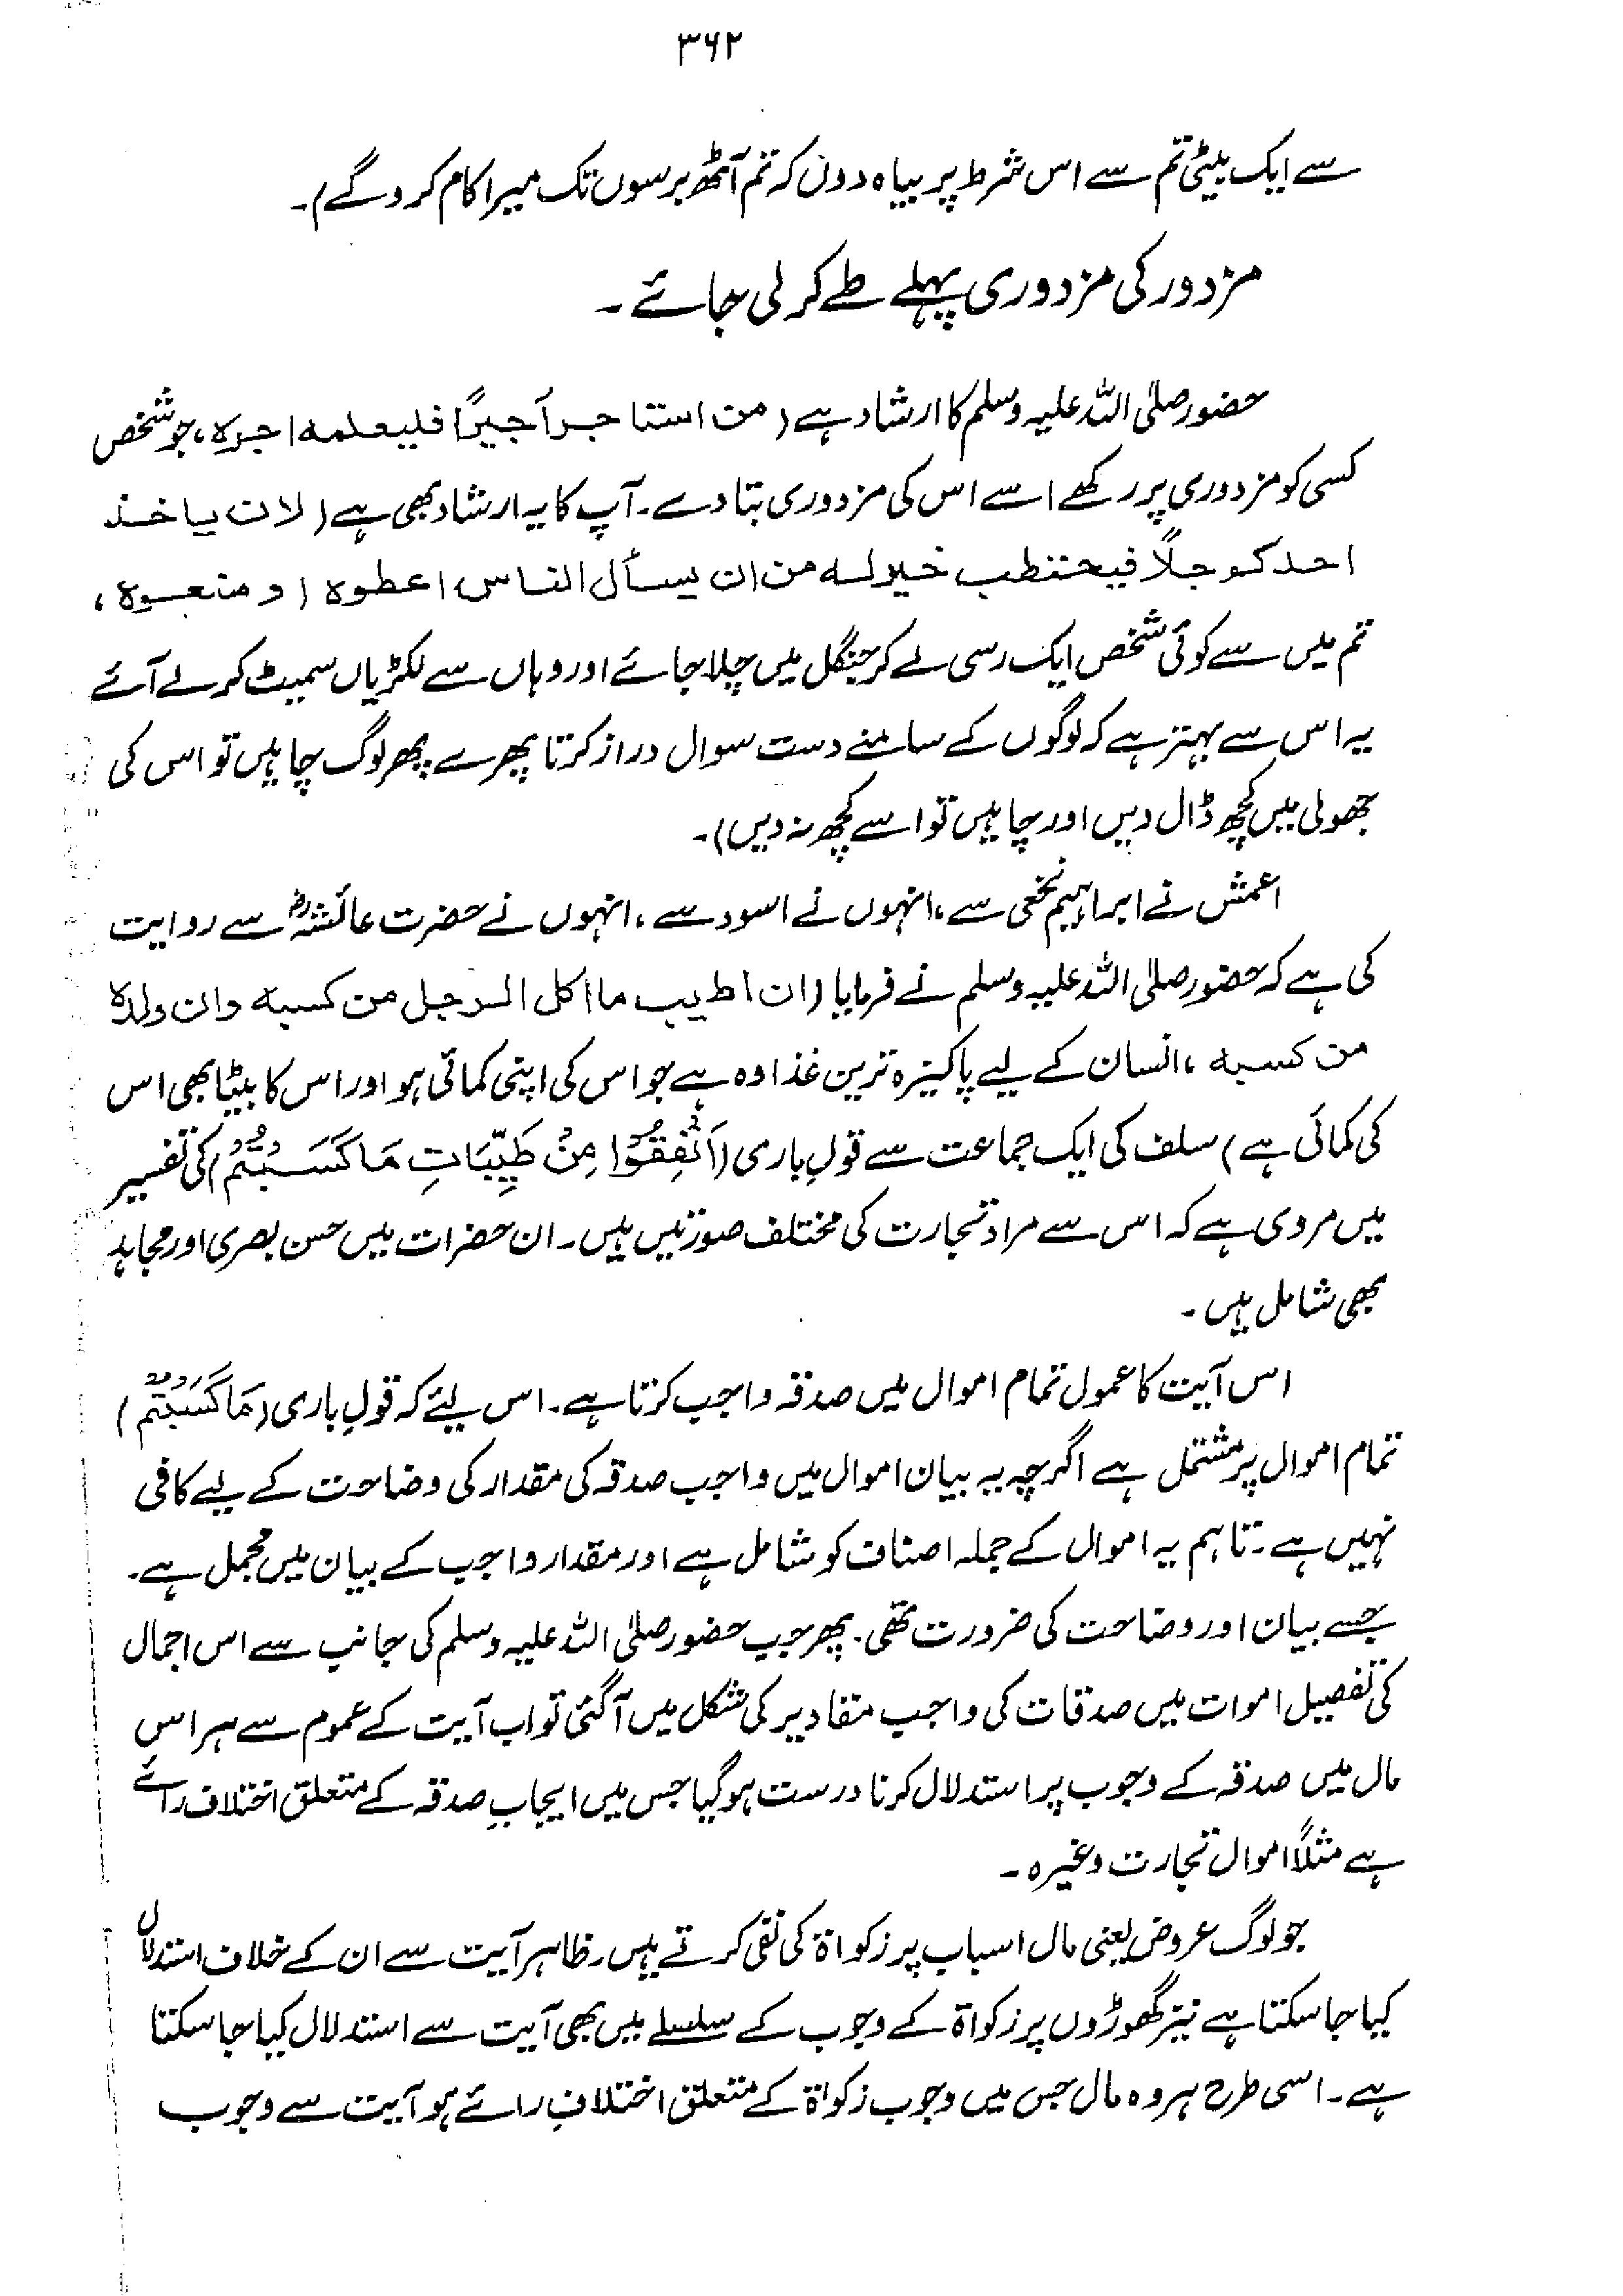 ۳۶۲
سے ایک بیٹی تم سے اس شرط پر بیاہ دوں کہ تم آٹھ برسوں تک میرا کام کرو گے)۔
مزدور کی مزدوری پہلے طے کر لی جائے۔
حضور صلی اللہ علیہ وسلم کا ارشاد ہے (من استاجر اَجیرًا فلیعلمہ اجرہ، جو شخص
کسی کو مزدوری پر رکھے اسے اس کی مزدوری بتا دے۔ آپ کا یہ ارشاد بھی ہے (لان یاخذ
احدکم حبلًا فیحتطب خیرلہ من ان یسأل الناس اعطوہ او منعوہ،
تم میں سے کوئی شخص ایک رسی لے کر جنگل میں چلا جائے اور وہاں سے لکڑیاں سمیٹ کر لے آئے
یہ اس سے بہتر ہے کہ لوگوں کے سامنے دست سوال دراز کرتا پھرے پھر لوگ چاہیں تو اس کی
جھولی میں کچھ ڈال دیں اور چاہیں تو اسے کچھ نہ دیں)۔
اعمش نے ابراہیم نخعی سے، انہوں نے اسود سے، انہوں نے حضرت عائشہؓ سے روایت
کی ہے کہ حضور صلی اللہ علیہ وسلم نے فرمایا (ان اطیب ما اکل الرجل من کسبہ وان ولدہ
من کسبہ، انسان کے لیے پاکیزہ ترین غذا وہ ہے جو اس کی اپنی کمائی ہو اور اس کا بیٹا بھی اس
کی کمائی ہے) سلف کی ایک جماعت سے قولِ باری (اَنْفِقُوْا مِنْ طَیِّبَاتِ مَا کَسَبْتُمْ) کی تفسیر
میں مروی ہے کہ اس سے مراد تجارت کی مختلف صورتیں ہیں۔ ان حضرات میں حسن بصری اور مجاہد
بھی شامل ہیں۔
اس آیت کا عمول تمام اموال میں صدقہ واجب کرتا ہے۔ اس لیئے کہ قولِ باری (مَا کَسَبْتُمْ)
تمام اموال پر مشتمل ہے اگرچہ یہ بیان اموال میں واجب صدقہ کی مقدار کی وضاحت کے لیے کافی
نہیں ہے۔ تاہم یہ اموال کے جملہ اصناف کو شامل ہے اور مقدار واجب کے بیان میں مجمل ہے۔
جسے بیان اور وضاحت کی ضرورت تھی۔ پھر جب حضور صلی اللہ علیہ وسلم کی جانب سے اس اجمال
کی تفصیل اموات میں صدقات کی واجب مقادیر کی شکل میں آ گئی تو اب آیت کے عموم سے ہر اس
مال میں صدقہ کے وجوب پر استدلال کرنا درست ہو گیا جس میں ایجابِ صدقہ کے متعلق اختلاف رائے
ہے مثلًا اموال تجارت وغیرہ۔
جو لوگ عروض یعنی مال اسباب پر زکواۃ کی نفی کرتے ہیں۔ ظاہر آیت سے ان کے خلاف استدلال
کیا جا سکتا ہے نیز گھوڑوں پر زکواۃ کے وجوب کے سلسلے میں بھی آیت سے استدلال کیا جا سکتا
ہے۔ اسی طرح ہر وہ مال جس میں وجوب زکواۃ کے متعلق اختلافِ رائے ہو آیت سے وجوب